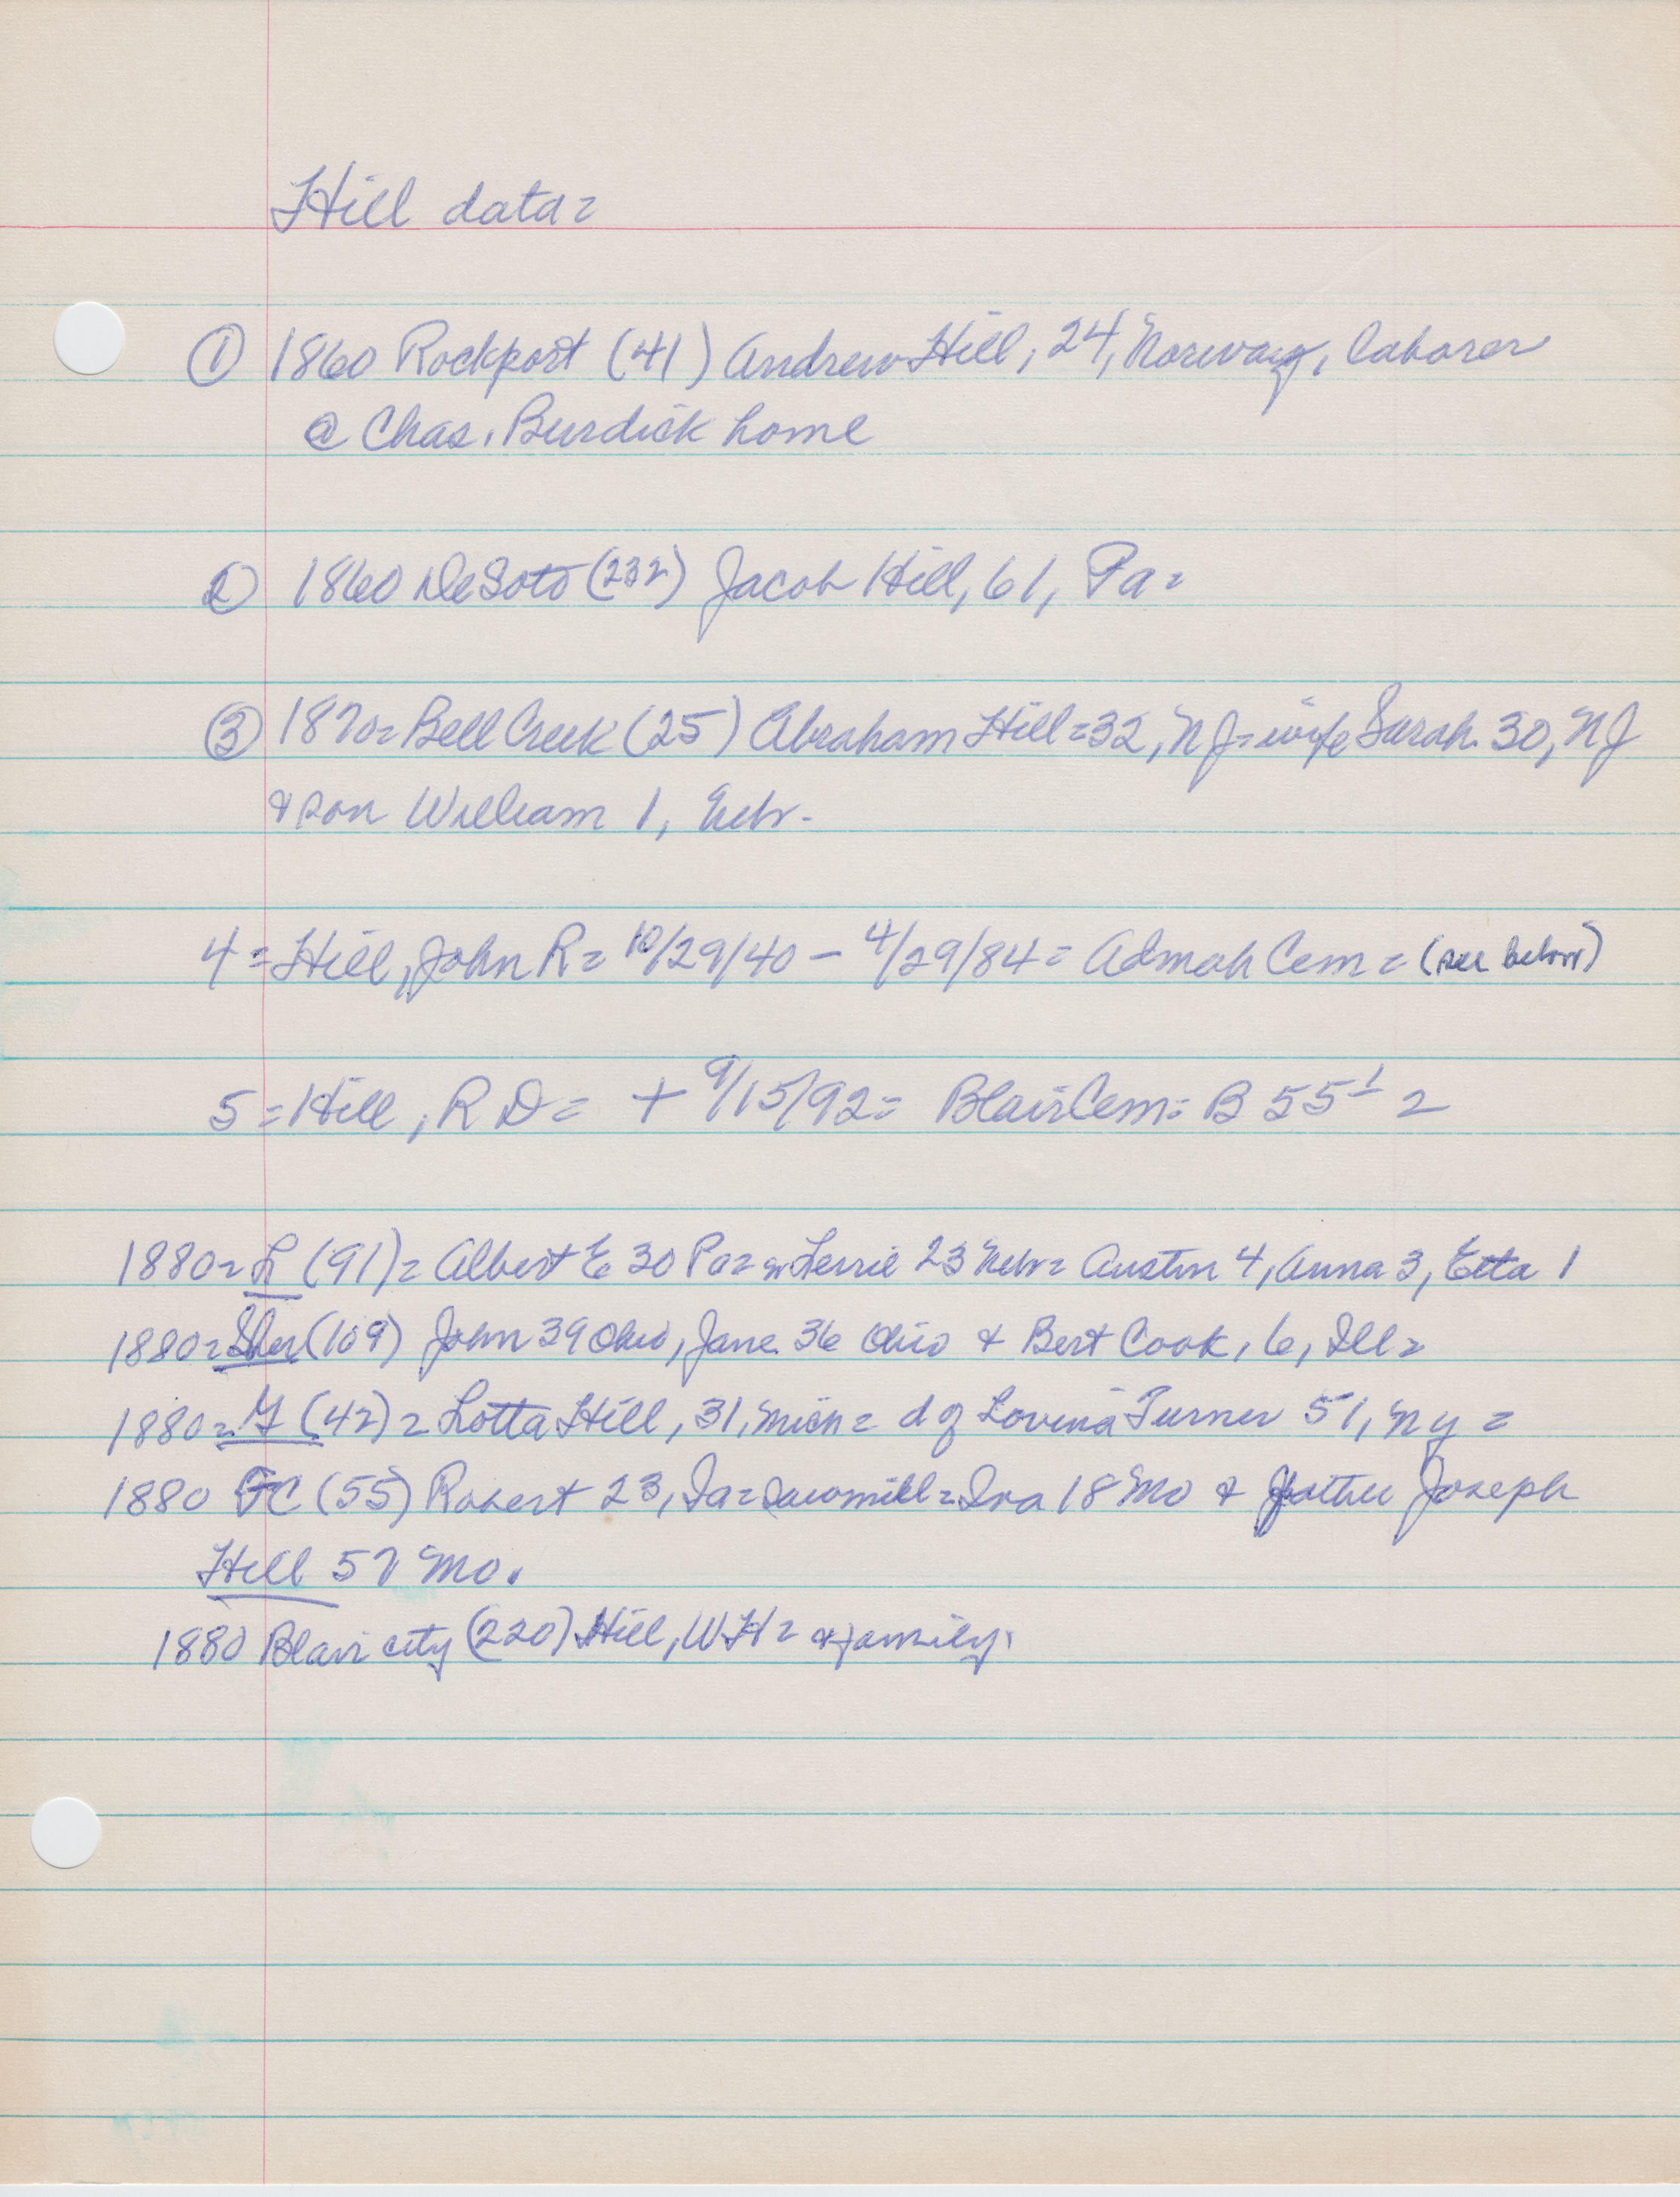 Hill data =
① 1860 Rockport (41) Andrew Hill, 24, Norway, laborer
@ Chas. Burdick home
② 1860 DeSoto (232) Jacob Hill, 61, Pa =
③ 1870 = Bell Creek (25) Abraham Hill = 32, NJ = wife Sarah 30, NJ
& son William 1, Nebr.
4 = Hill, John R = 10/29/40 – 4/29/84 = Admah Cem = (see below)
5 = Hill, R D = + 9/15/92 = Blair Cem = B 55 1/2
1880 = L (91) = Albert E 30 Pa = w 23 Nebr = Austin 4, Anna 3, Etta 1
1880 = Sher (109) John 39 Ohio, Jane 36 Ohio & Bert Cook, 6, Ill =
1880 = (42) = Lotta Hill, 31, Mich = d of Lovina Turner 51, NY =
1880 FC (55) Robert 23, Ia = Sawmill = Ira 18 Mo & father Joseph
Hill 57 Mo.
1880 Blair city (220) Hill, WH = & family.